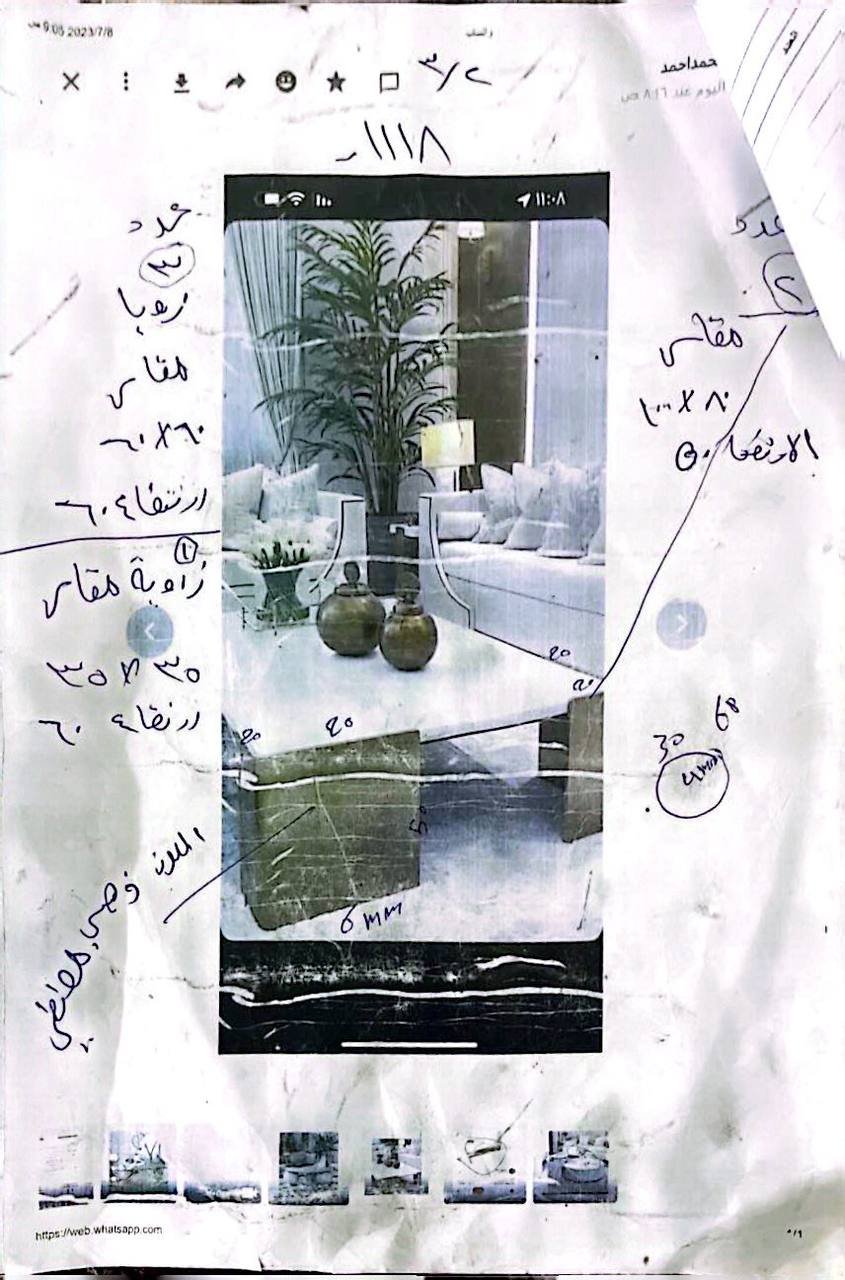 9:05 2023/7/8
واتساب
حمداحمد
اليوم عند ٨:١٦ ص
٣/٢
١١١٨
١١:٠٨
عدد
٢
مقاس
٨٠ X ١٠٠
الارتفاع ٥٠
عدد
٣
زوايا
مقاس
٦٠X٦٠
ارتفاع ٦٠
١
زاوية مقاس
٣٥ X ٣٥
ارتفاع ٦٠
20
20
20
20
50
6 mm
30
60
4mm
اللون
https://web.whatsapp.com